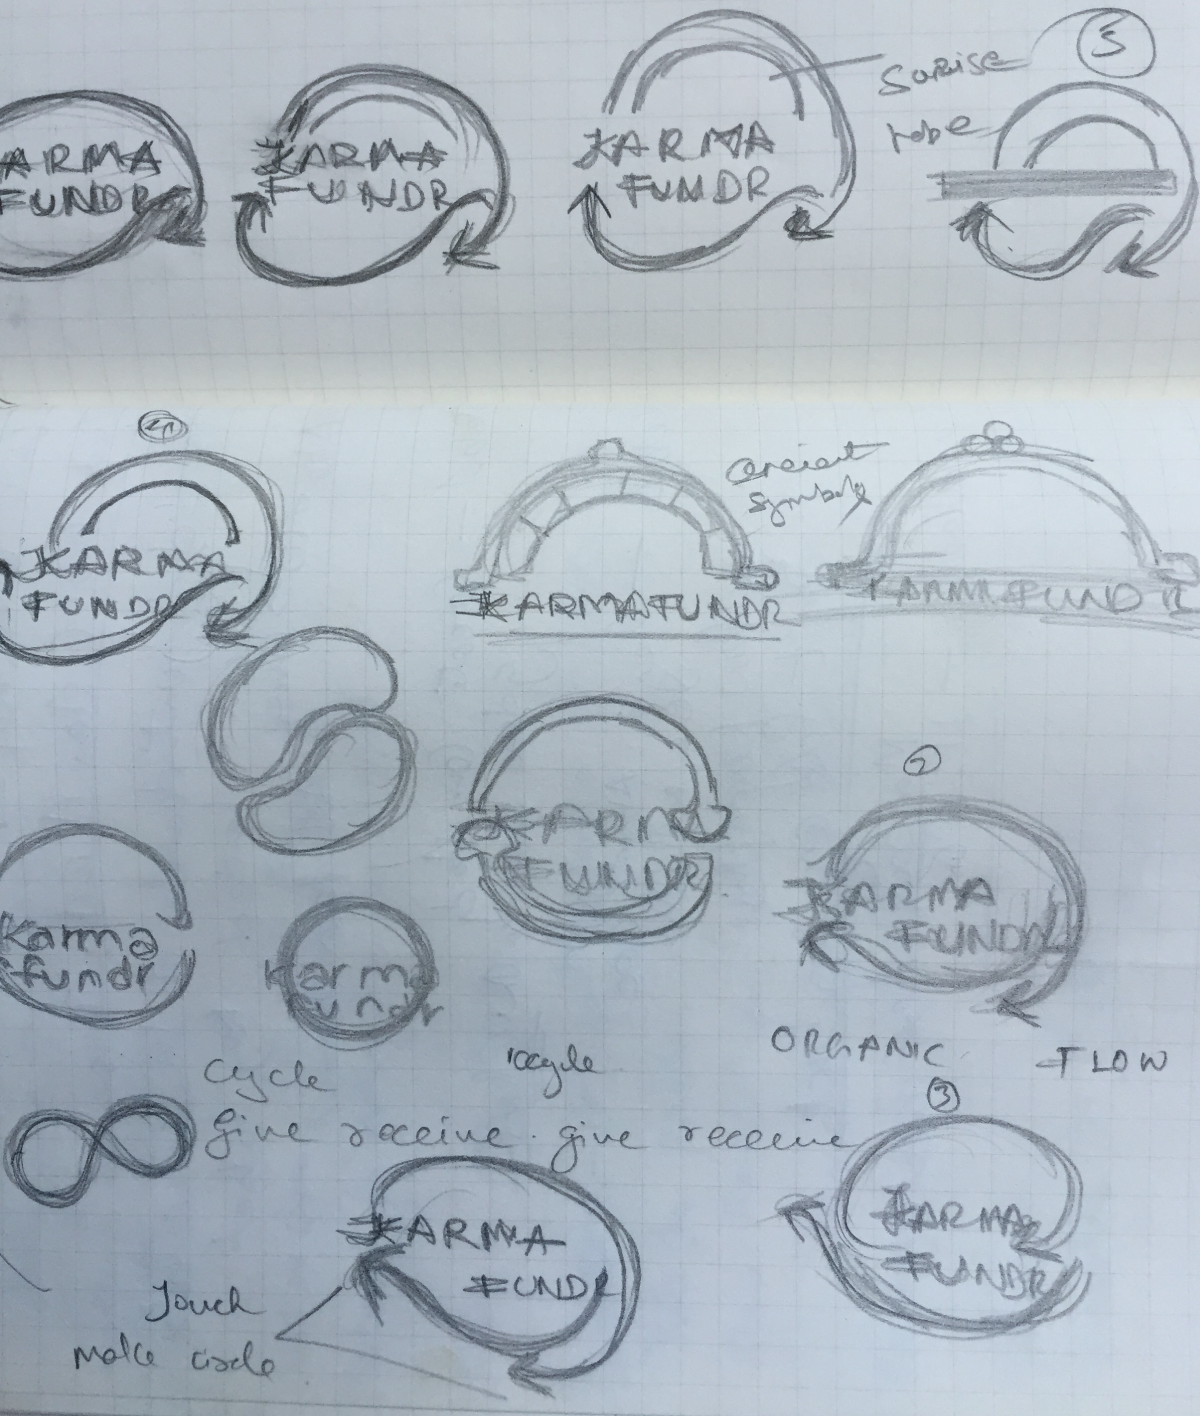 ARMA
FUNDR
KARMA
FUNDR
KARMA
FUNDR
Sunrise
hope
5
4
KARMA
FUNDR
KARMAFUNDR
ancient
symbols
KARMAFUNDR
KARMA
FUNDR
2
KARMA
FUNDR
Karma
fundr
Karma
fundr
ORGANIC FLOW
cycle
give receive. give receive
3
KARMA
FUNDR
KARMA
FUNDR
Touch
make circle